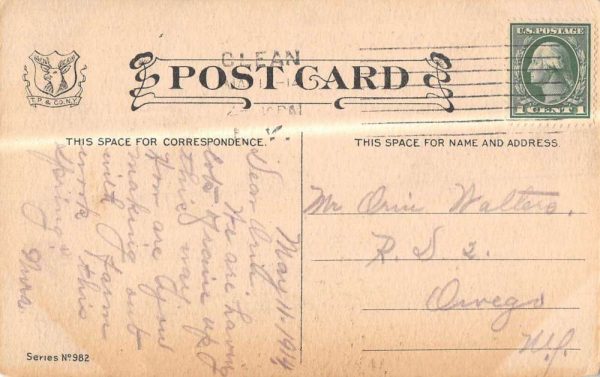 T.P. & CO. N.Y.
OLEAN
POST CARD
U.S. POSTAGE
1 CENT 1
THIS SPACE FOR CORRESPONDENCE.
THIS SPACE FOR NAME AND ADDRESS
May 11 - 1914
Dear
We are having
lots of rain up
this way.
How are you
making out
with farm
work this
spring.
Mr Orin Walters,
R. D. 2.
Owego
N.Y.
Series No 982